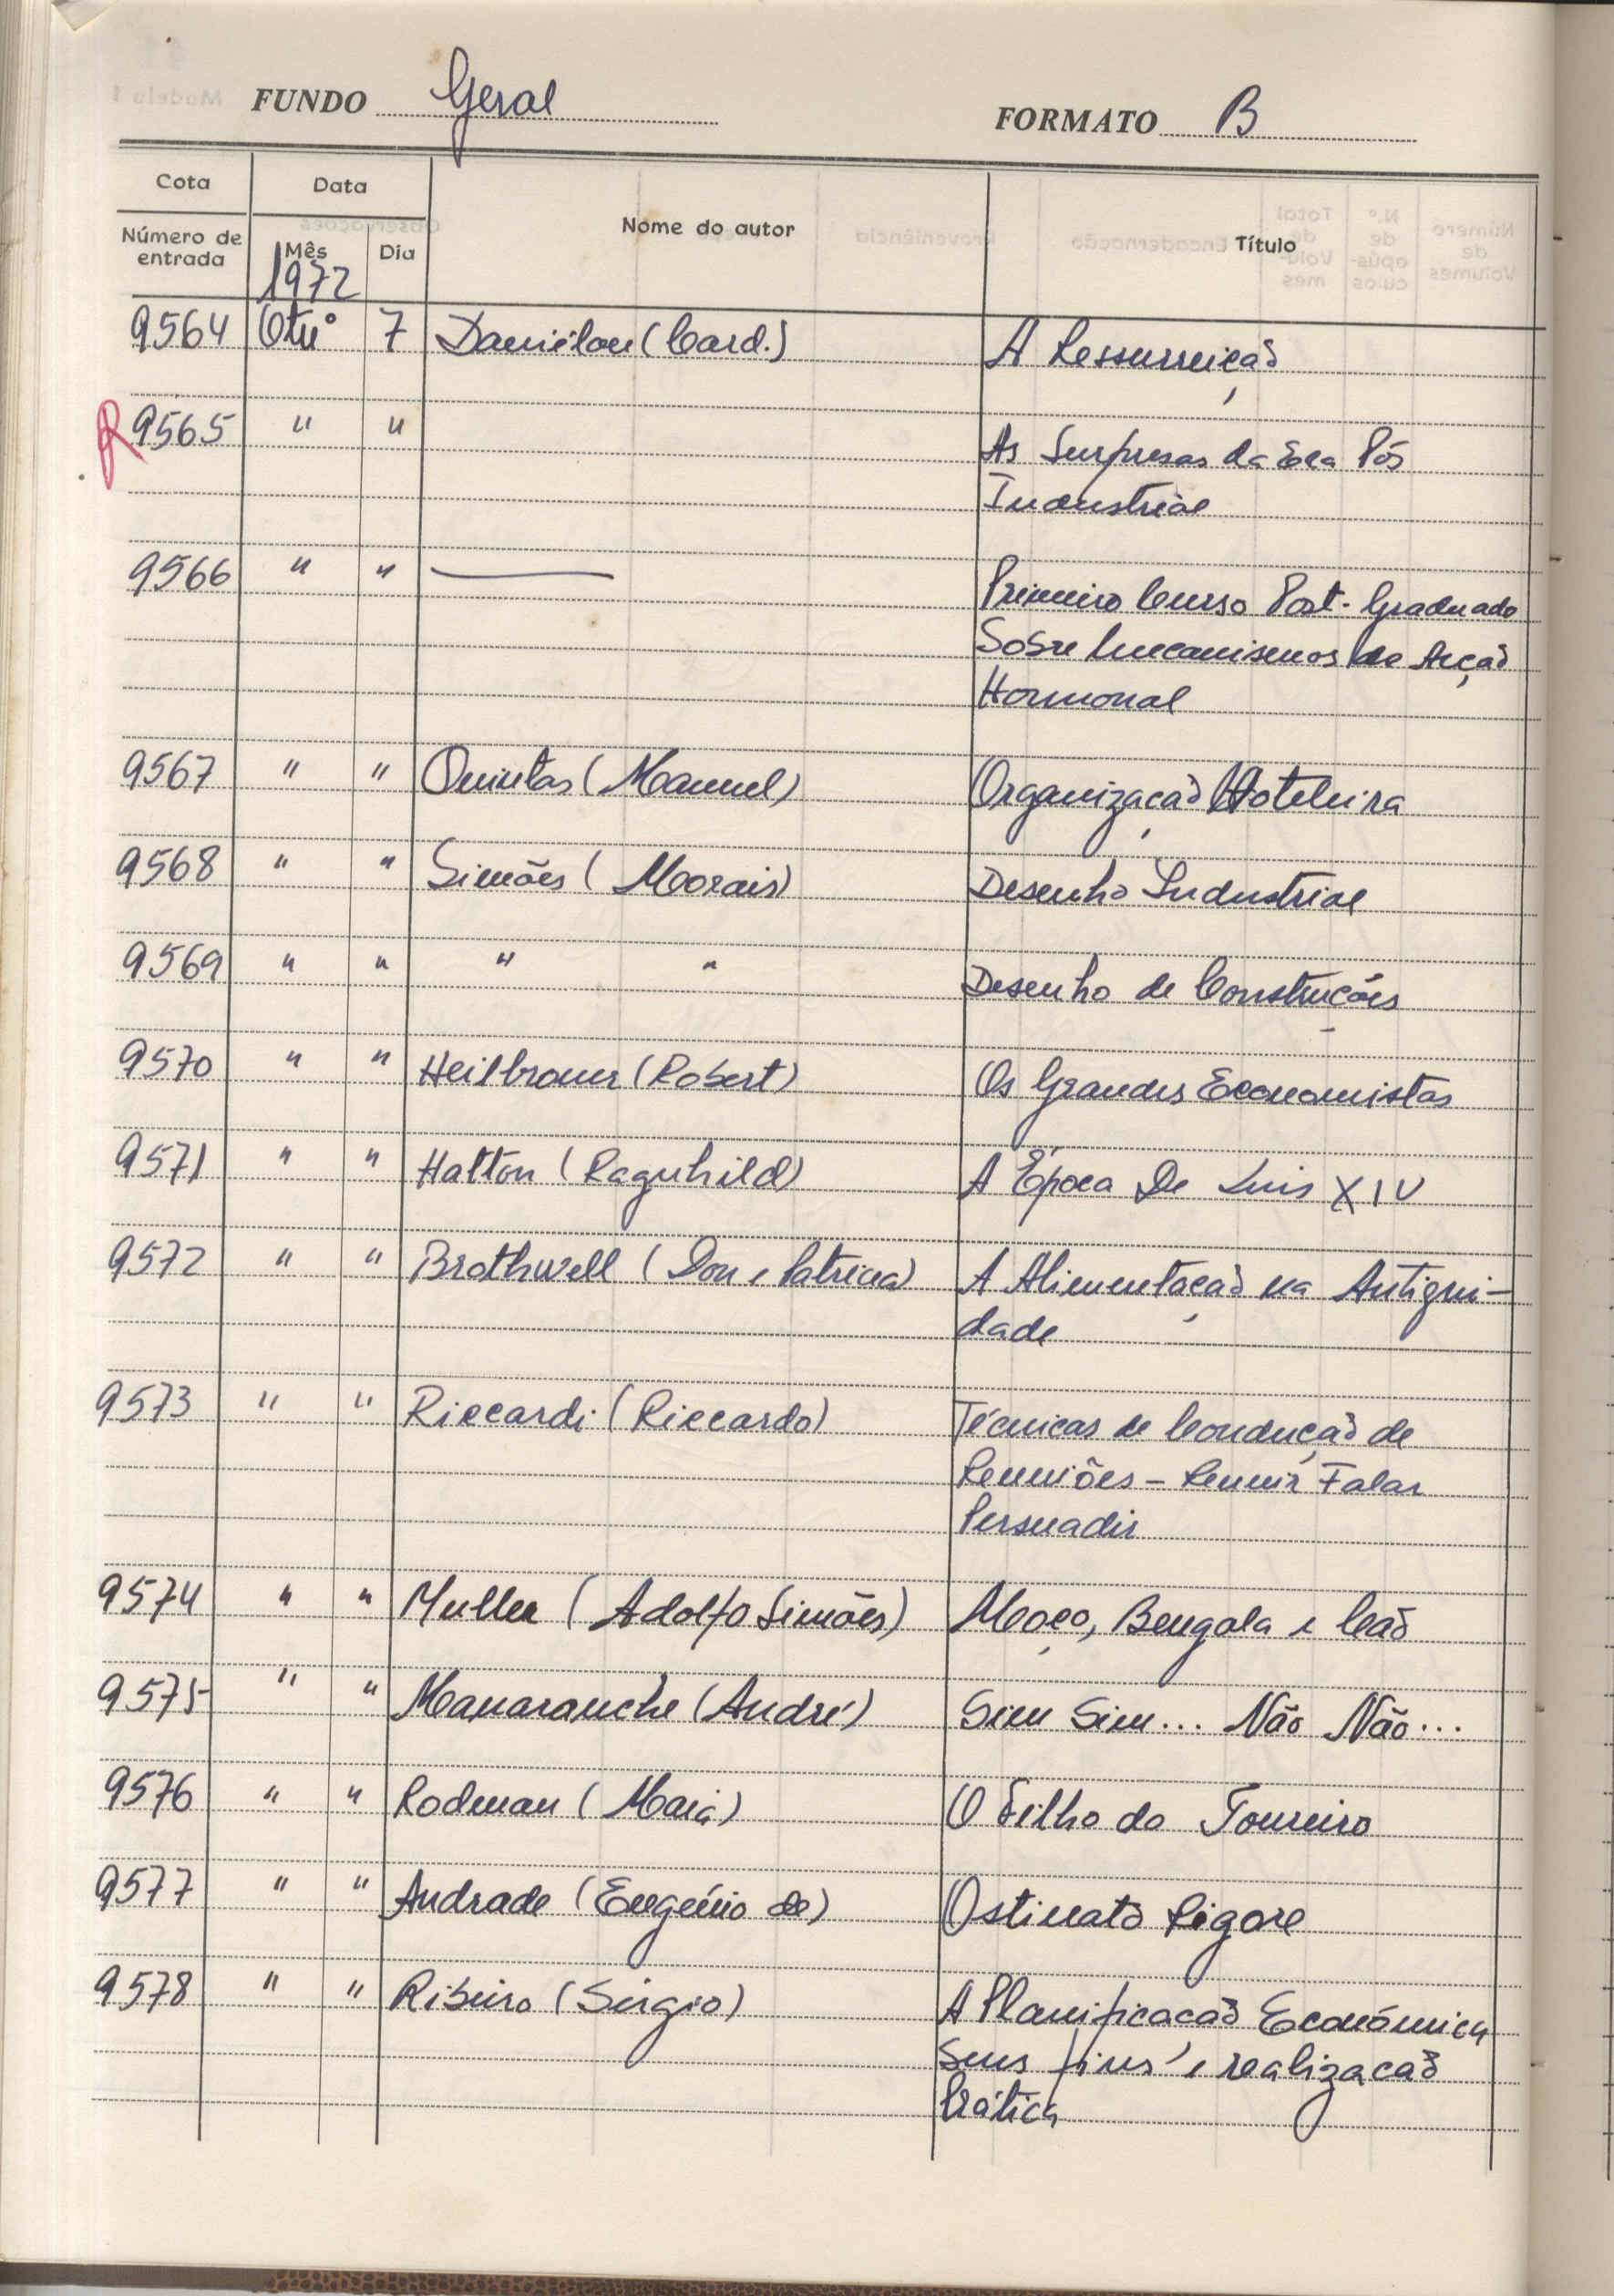 FUNDO Geral
FORMATO B
Cota Data Nome do autor Título
Número de entrada Mês Dia
1972
9564 Out.º 7 Daniélou (Card.) A Ressurreição
R 9565 " " As Surpresas da Era Pós
Industrial
9566 " " —— Primeiro Curso Post-Graduado
Sobre Mecanismos de Acção
Hormonal
9567 " " Quintas (Manuel) Organização Hoteleira
9568 " " Simões (Morais) Desenho Industrial
9569 " " " " Desenho de Construções
9570 " " Heilbroner (Robert) Os Grandes Economistas
9571 " " Hatton (Ragnhild) A Época De Luis XIV
9572 " " Brothwell (Don e Patricia) A Alimentação na Antigui-
dade
9573 " " Riccardi (Riccardo) Técnicas de Condução de
Reuniões - Reunir Falar
Persuadir
9574 " " Muller (Adolfo Simões) Moço, Bengala e Cão
9575 " " Manaranche (André) Sim Sim... Não Não...
9576 " " Rodman (Maia) O Filho do Toureiro
9577 " " Andrade (Eugénio de) Ostinato Rigore
9578 " " Ribeiro (Sérgio) A Planificação Económica
Seus fins e realização
Prática